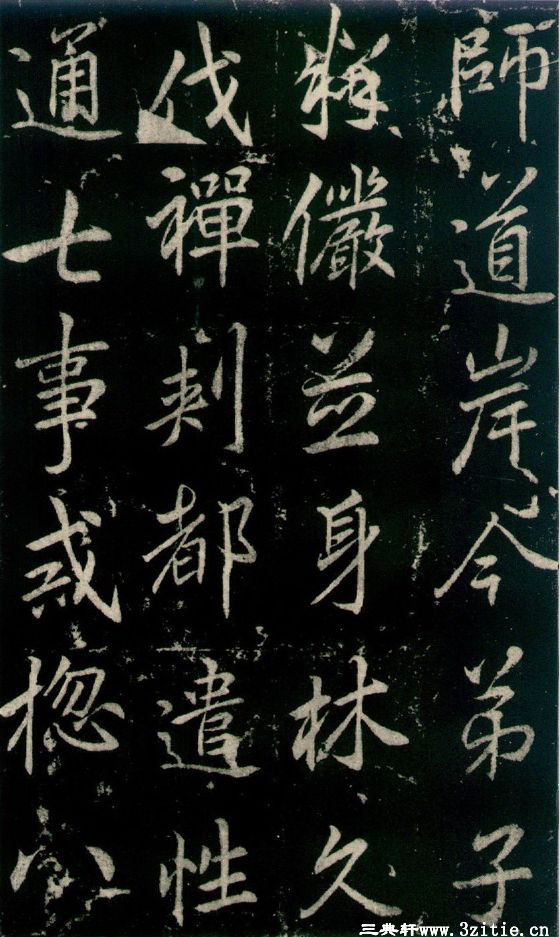 師道岸今弟子
釋儼並身林久
伐禪刹都遣性
通七事戒惚八
三典轩www.3zitie.cn